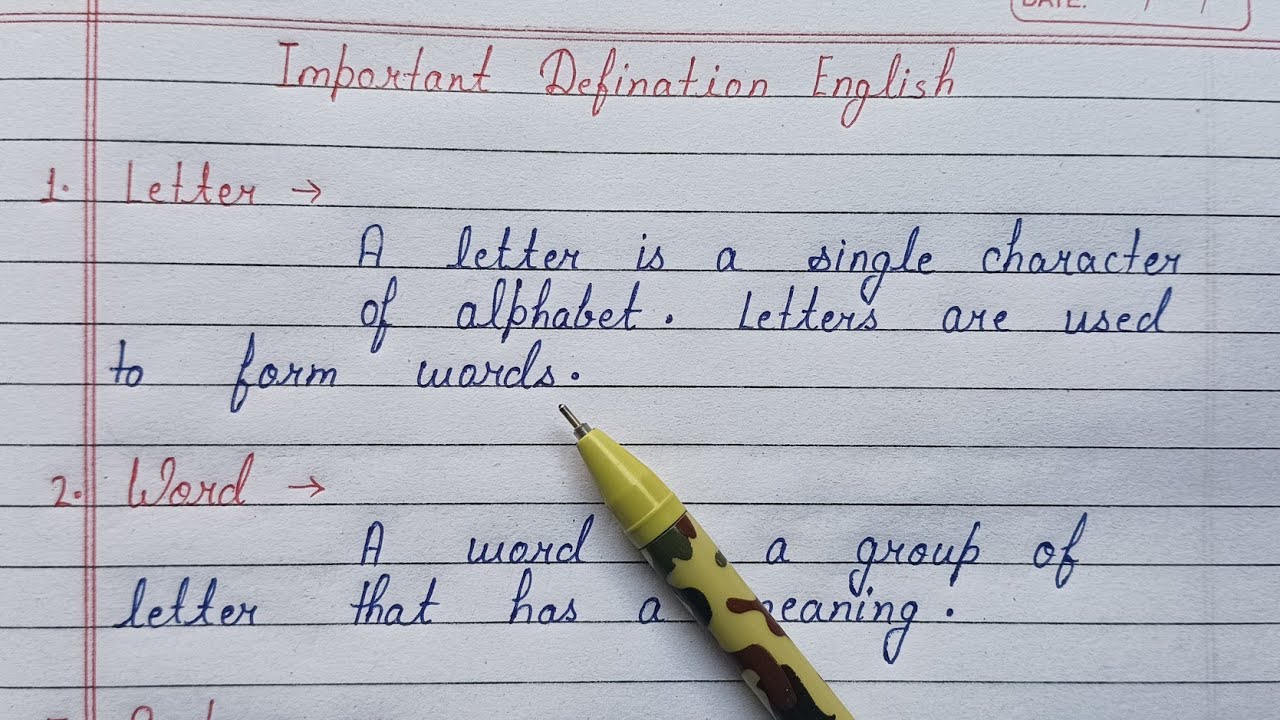 DATE: / /
Important Defination English
1. Letter →
A letter is a single character
of alphabet. Letters are used
to form words.
2. Word →
A word a group of
letter that has a meaning.